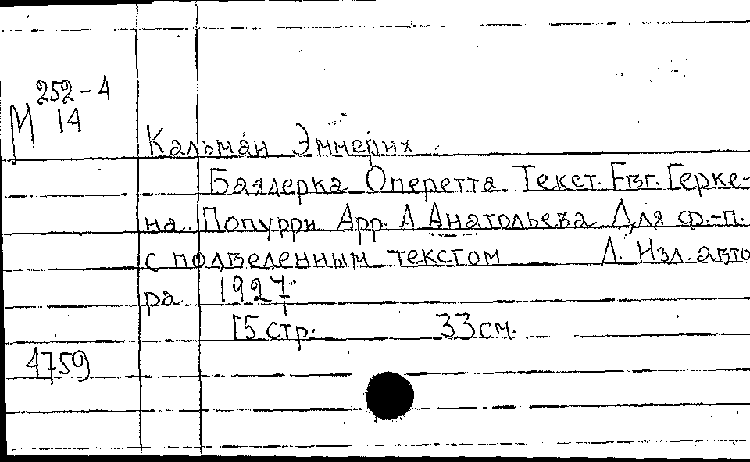 252-4
М 14
Кальман Эммерих
Баядерка Оперетта Текст. Евг. Герке-
на. Попурри Арр. А Анатольева Для ф.-п.
с подведенным текстом Л. Изд. авто
ра 1927
15 стр. 33 см.
4759